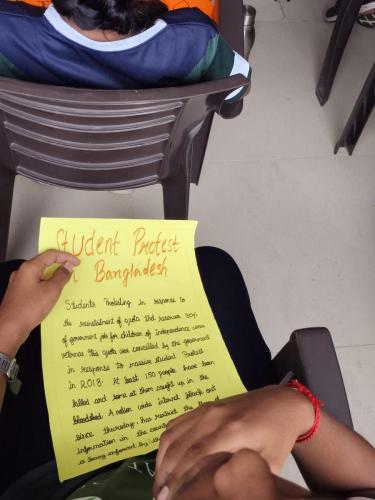 Student Protest
in Bangladesh
Students Protesting in response to
the reinstatment of quota that reserves 30%
of government job for children of Independence war
veterans. This quota was cancelled by the government
in response to massive student Protest
in 2018. At least 150 people have been
killed and some of them caught up in the
bloodshed. A nation wide internet black out
since thursday, has restrict the
information in the
is being